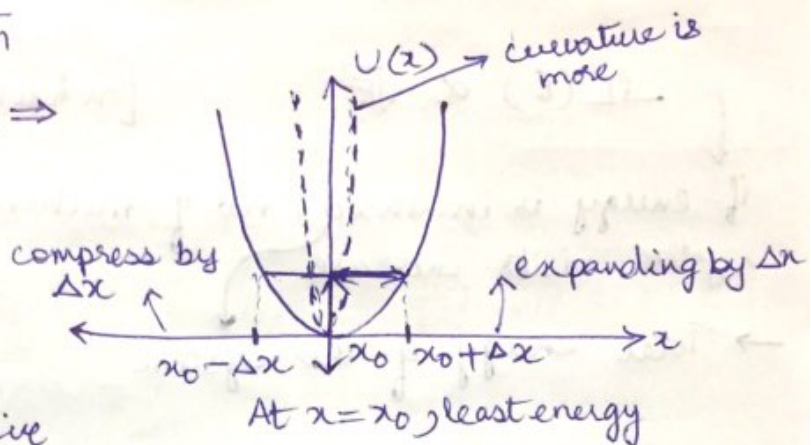 U(x)
curvature is
more
⇒
compress by
Δx
expanding by Δx
x
x₀-Δx x₀ x₀+Δx
At x=x₀, least energy